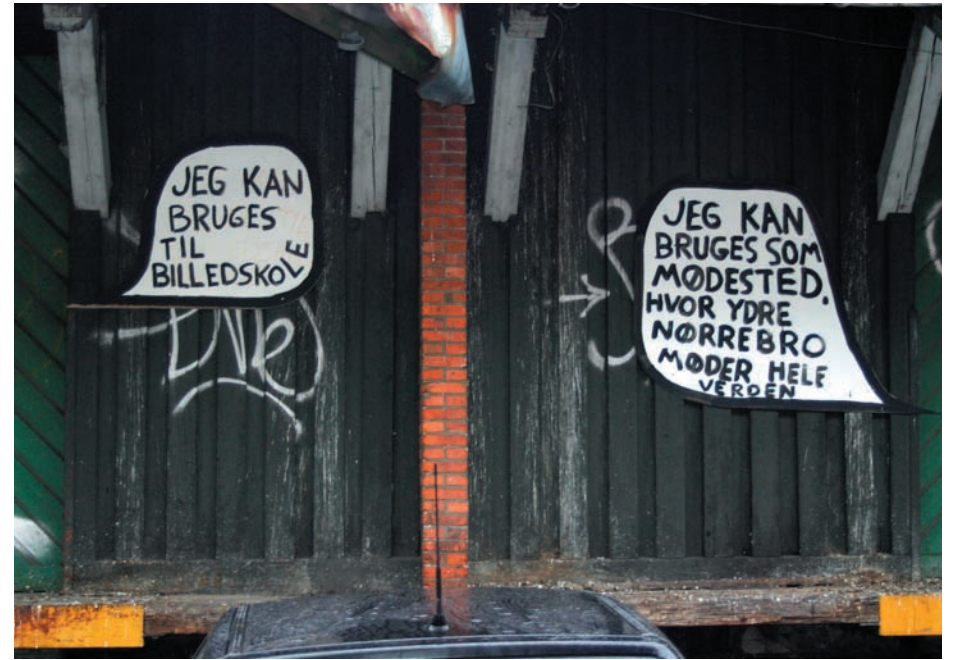 JEG KAN
BRUGES
TIL
BILLEDSKOLE
JEG KAN
BRUGES SOM
MØDESTED.
HVOR YDRE
NØRREBRO
MØDER HELE
VERDEN